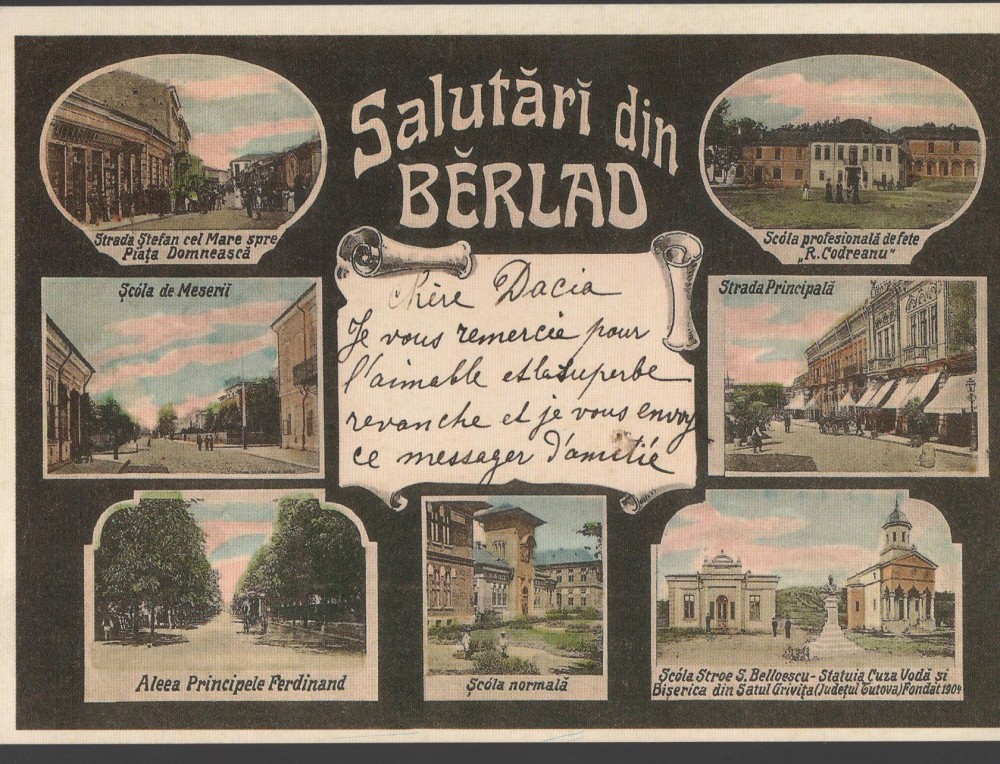 Salutări din
BĔRLAD
Strada Ștefan cel Mare spre
Piața Domnească
Scóla profesională de fete
„R. Codreanu"
Șcóla de Meserii
Strada Principală
Chère Dacia
Je vous remercie pour
l'aimable et la superbe
revanche et je vous envoy
ce messager d'amitié
Aleea Principele Ferdinand
Șcóla normală
Șcóla Stroe S. Belloescu - Statuia Cuza Vodă și
Biserica din Satul Grivița (Județul Tutova) Fondat 1904